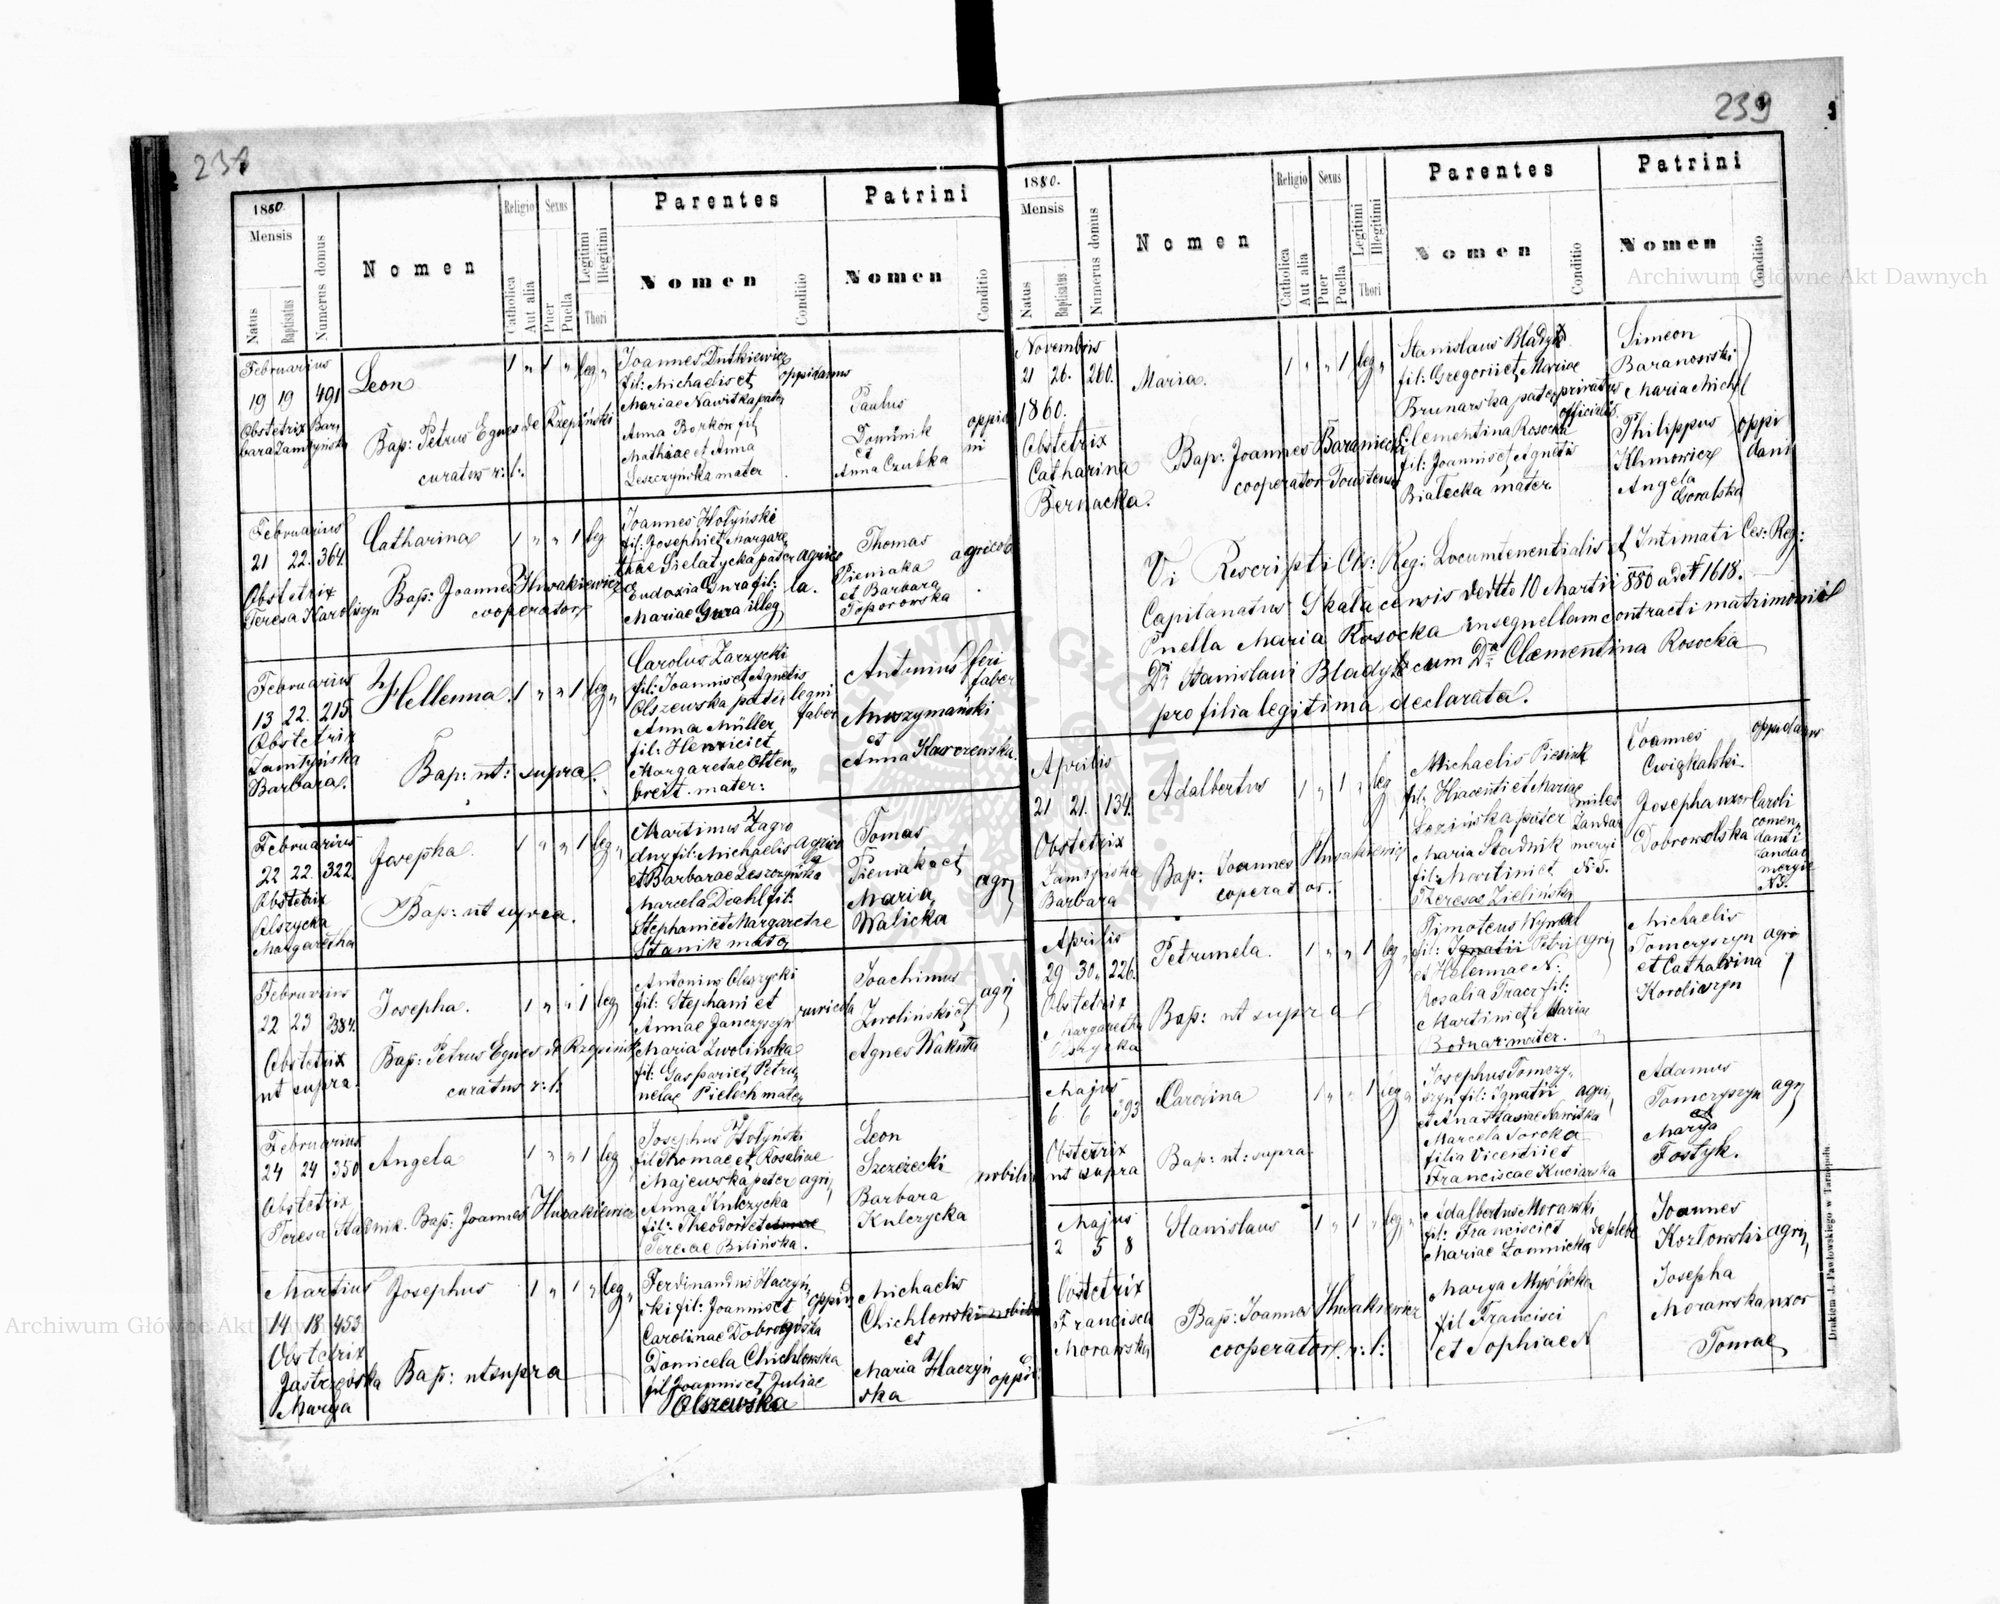 238
1880.
Mensis
Natus
Baptisatus
Numerus domus
Nomen
Religio
Catholica
Aut alia
Sexus
Puer
Puella
Legitimi
Illegitimi
Thori
Parentes
Nomen
Conditio
Patrini
Nomen
Conditio
Februarius
19 19 491
Obstetrix Bar,
bara Zamtyńska
Leon
Bap: Petrus Eques de Rzepiński
curatus r: l:
1 „ 1 „ leg „
Joannes Dutkiewicz
fil: Michaelis et
Mariae Nawitka pater
oppidanus
Anna Borkon fil
Mathiae et Anna
Leszczyńska mater
Paulus
Dominik
et
Anna Czubka
oppida
ni
Februarius
21 22. 364.
Obstetrix
Teresa Koroliszyn
Catharina
Bap: Joannes Hwakiewicz
cooperator
1 „ „ 1 leg
Joannes Hołyński
fil: Josephi et Margare,
thae Sielatycka pater agrico
Eudoxia Gura fil: la.
Mariae Gura illeg
Thomas
Pieniaka
et Barbara
Toporowska
agricola
Februarius
13 22. 215
Obstetrix
Zamtyńska
Barbara.
Hellenna.
Bap: ut: supra.
1 „ „ 1 leg „
Carolus Zarzycki
fil: Joannis et Agnetis
Olszewska pater legni
Anna Müller faber
fil: Henrici et
Margaretae Otten„
breit. mater:
Antonius feri
faber
Muszymański
et
Anna Karczewska.
Februarius
22 22. 322.
Obstetrix
Olszycka
Margaretha
Josepha.
Bap: ut supra.
1 „ „ 1 leg „
Martinus Zagro
dny fil: Michaelis agrico
et Barbarae Leszczyńska la
Marcela Diahl fil:
Stephani et Margarethae
Stanik mater
Tomas
Pieniaka et
Maria
Walicka
agri
Februarius
22 23 384.
Obstetrix
ut supra.
Josepha.
Bap: Petrus Eques de Rzepiński
curatus r: l:
1 „ „ 1 leg
Antonius Olszycki
fil: Stephani et
Annae Janczyszyn ruricola
Maria Zwolinska
fil: Gaspari et Petru,
nelae Pielech mater
Joachimus
Zwoliński et
Agnes Wakutta
agri
Februarius
24 24 350
Obstetrix
Teresa Stadnik.
Angela
Bap: Joannes Hwakiewicz
1 „ „ 1 leg
Josephus Hołyński
fil Thomae et Rosaliae
Majewska pater agri,
Anna Kulczycka
fil: Theodori et
Teresae Bilińska.
Leon
Szczerecki
Barbara
Kulczycka
nobilis
Martius
14 18 453.
Obstetrix
Jastrzębska
Marya
Josephus
Bap: ut supra
1 „ 1 „ leg „
Ferdinandus Haczyń,
ski fil: Joannis et oppid,
Carolinae Dobrogórska
Domicela Chichlowska
fil Joannis et Juliae
Olszewska
Michaelis
Chichlowski nobilis
et
Maria Haczyń
ska
oppid:
239
1880.
Mensis
Natus
Baptisatus
Numerus domus
Nomen
Religio
Catholica
Aut alia
Sexus
Puer
Puella
Legitimi
Illegitimi
Thori
Parentes
Nomen
Conditio
Patrini
Nomen
Conditio
Novembris
21 26. 260.
1860.
Obstetrix
Catharina
Bernacka.
Maria.
Bap: Joannes Baraniecki
cooperator Toustensis
1 „ „ 1 leg „
Stanislaus Bladyk
fil: Gregorii et Mariae
Brunarska pater privatus
officialis
Clementina Rosocka
fil: Joannis et Agnetis
Białecka mater.
Simeon
Baranowski
Maria Mich
Philippus
Klimowicz
Angela
Goralska
oppi
dani
Vi Rescripti Cs: Reg: Locumtenentialis et Intimati Ces: Reg:
Capitanatus Skalacensis dedtto 10 Martii 880 ad N 1618.
Puella Maria Rosocka in sequellam contracti matrimonii
Di Stanislai Bladyk cum Da Clementina Rosocka
pro filia legitima declarata.
Aprilis
21 21. 134.
Obstetrix
Zamtyńska
Barbara
Adalbertus
Bap: Joannes Hwakiewicz
coperator.
1 „ 1 „ leg
Michaelis Piesiuk
fil: Hiacenti et Mariae
Lozińska pater
Maria Stadnik
fil: Martini et
Teresae Zielińska
miles
Zandar
meryi
N: 5.
Joannes
Cwiąkalski.
Josepha uxor
Dobrowolska
oppidanus
Caroli
comen,
danti
Zandar
meryi
N 5.
Aprilis
29 30. 226.
Obstetrix
Margaretha
Olszycka
Petrunela.
Bap: ut supra
1 „ „ 1 leg „
Timoteus Wynial
fil: Ignatii Petri agri,
et Helennae N:
Rosalia Tracz fil:
Martini et Mariae
Bodnar mater.
Michaelis
Tomczyszyn
et Catharina
Koroliszyn
agri
Majus
6 6 393
Obstetrix
ut supra
Carolina
Bap: ut: supra.
1 „ „ 1 leg „
Josephus Tomczy,
szyn fil: Ignatii agri,
et Anastasiae Nawitka
Marcela Soroka
filia Vicentii et
Franciscae Kuciarska
Adamus
Tomczyszyn
et
Marya
Fostyk.
agri
Majus
2 5 8
Obstetrix
Francisca
Morawska
Stanislaus
Bap: Joannes Hwakiewicz
cooperator. r: l:
1 „ 1 „ leg „
Adalbertus Morawski
fil: Francisci et de plebe
Mariae Łomnicka
Marya Myślicka
fil Francisci
et Sophiae N
Joannes
Kozłowski agri,
Josepha
Morawska uxor
Tomae
Drukiem J. Pawłowskiego w Tarnopolu.
Archiwum Główne Akt Dawnych
Archiwum Główne Akt Dawnych
ARCHIWUM GŁÓWNE AKT DAWNYCH